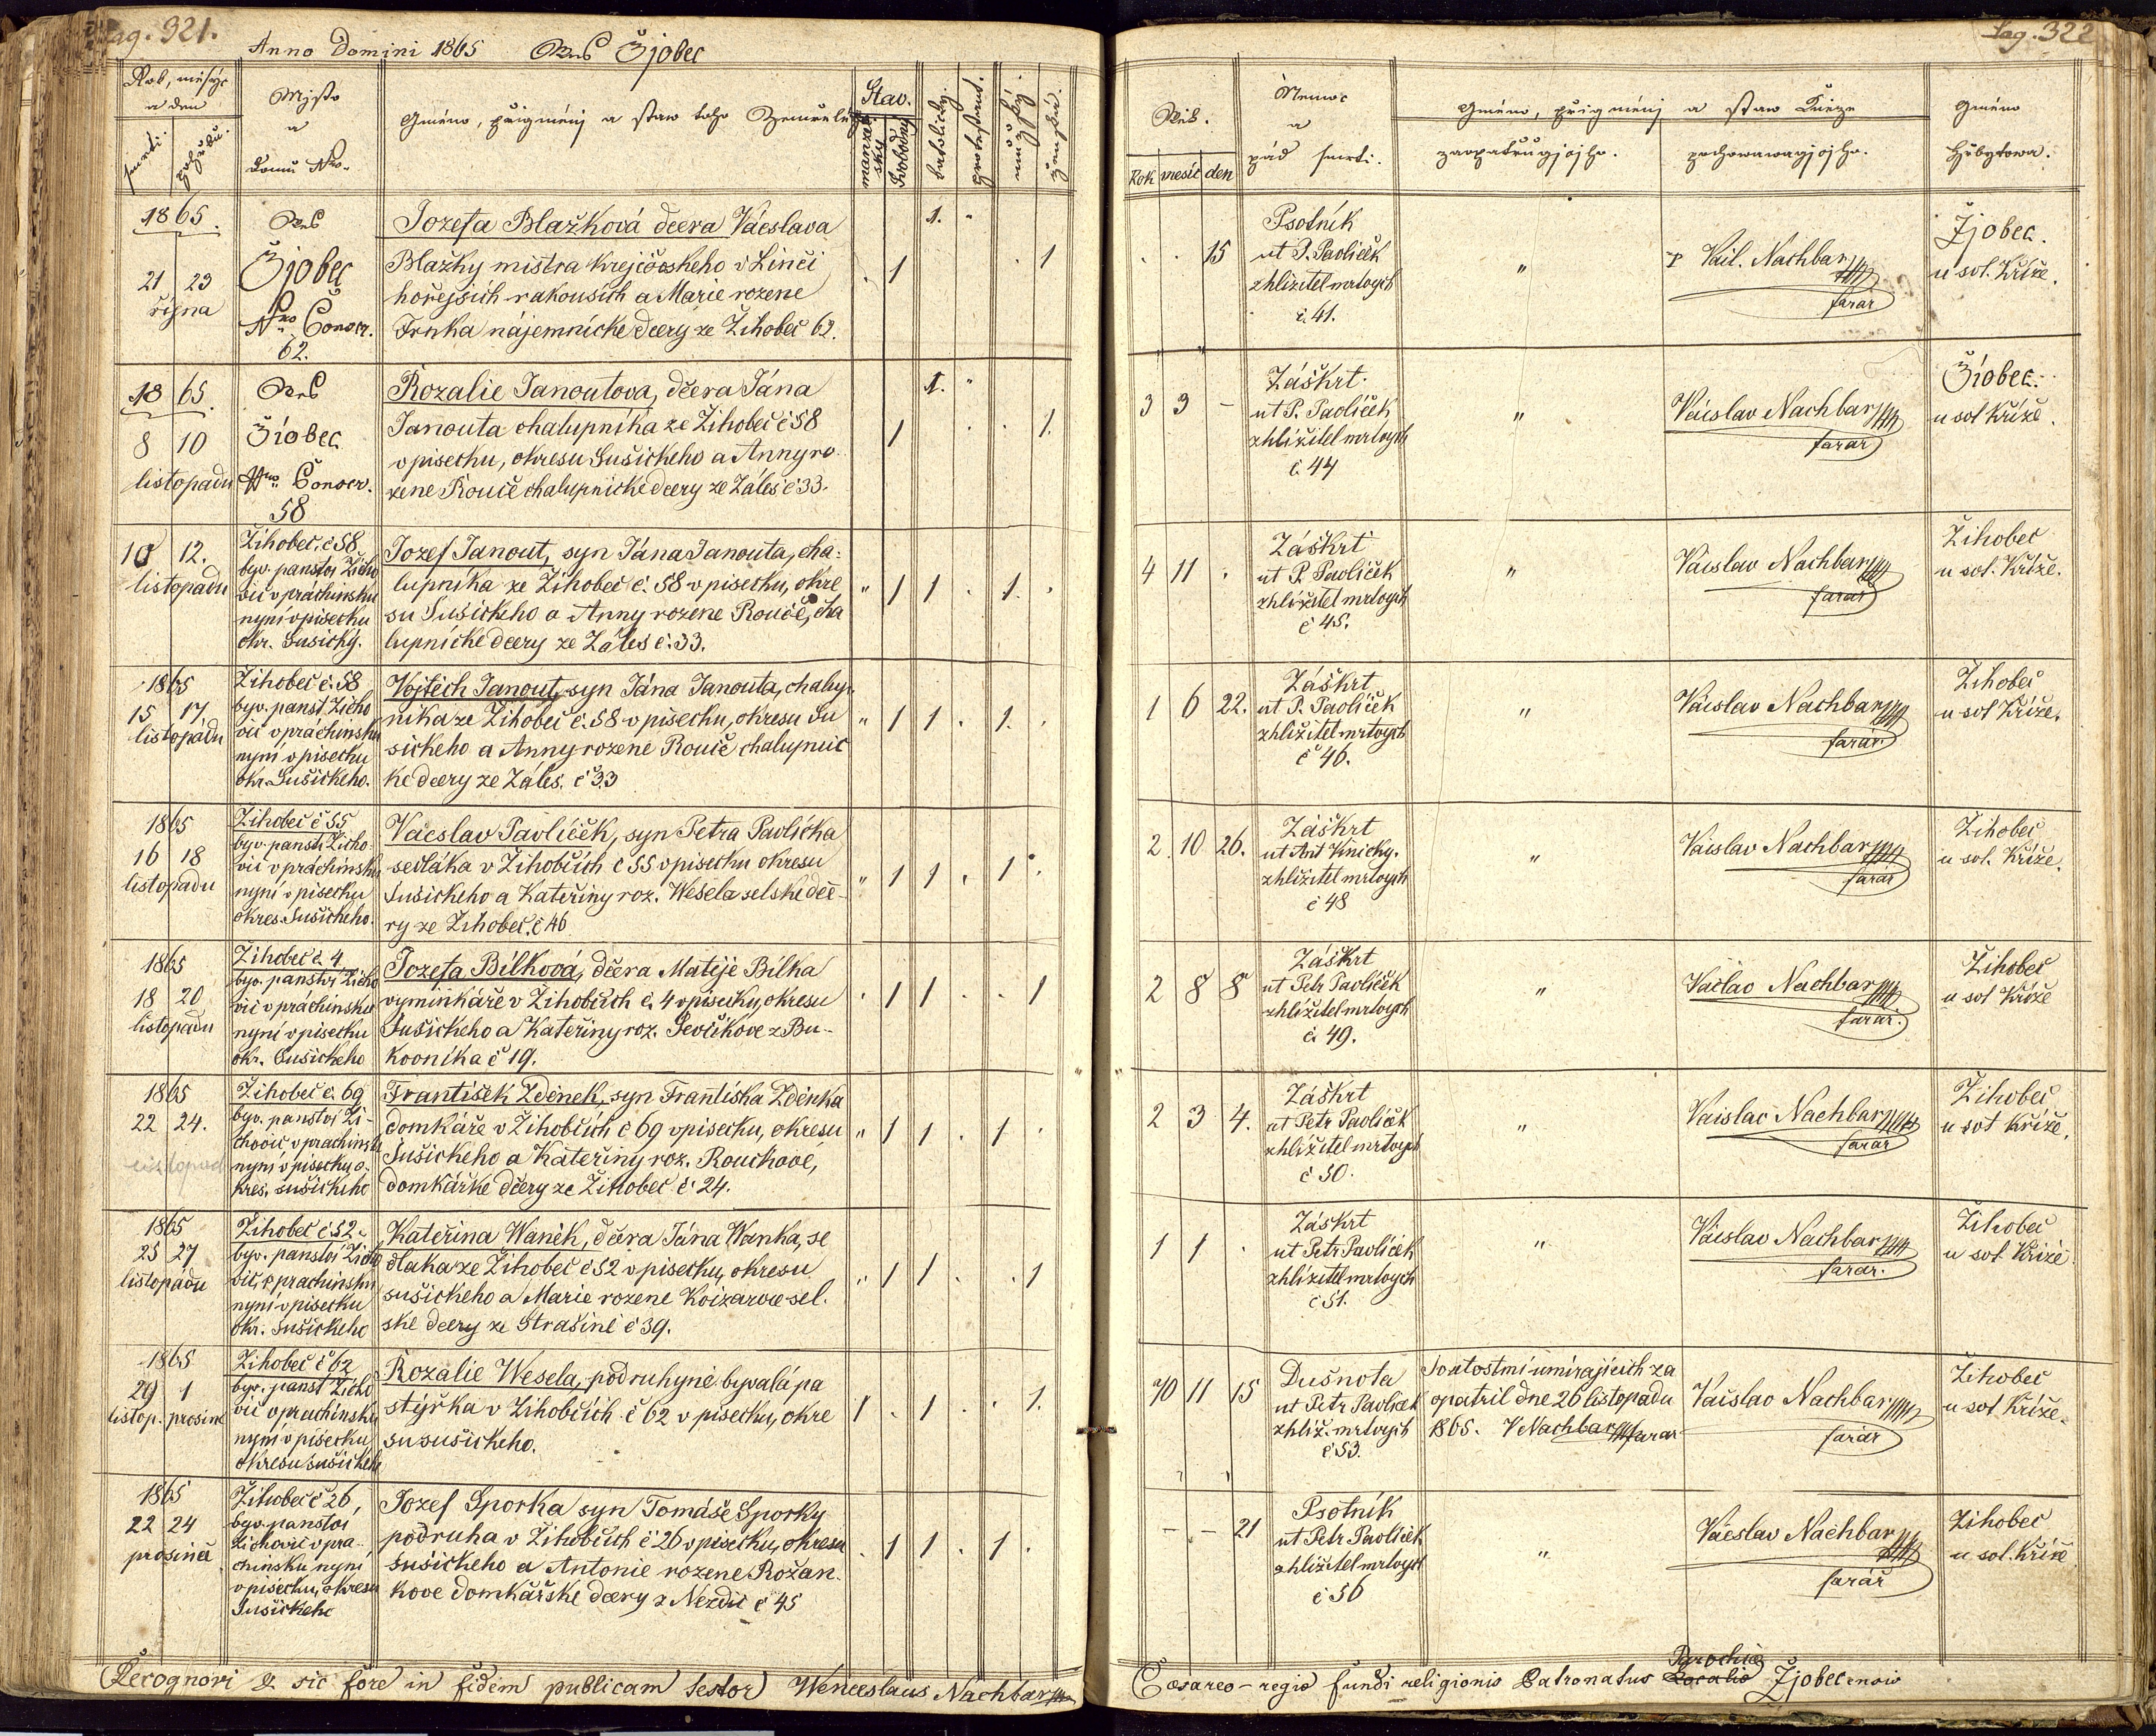 Pag. 321.
Anno Domini 1865 Ves Žjobec
Rok, měsýc
a den
smrti. pohřbu.
Mjsto
a
domu Nro.
Gméno, přigménj a staw toho Zemřelého
Stav.
manželský
Svobodný
katolický.
protestant.
mužský.
ženská.
1865.
21 23
řijna
Ves
Žjobec
Nro Conscr.
62.
Jozefa Blažková dcera Václava
Blažky mistra krejčovskeho v Linci
hořejších rakousich a Marie rozene
Trnka nájemnicke dcery ze Žihobec 62.
1. 1 1
1865.
8 10
listopadu
Ves
Žiobec
Nro. Conscr.
58
Rozalie Janoutova, dčera Jána
Janouta chalupníka ze Žihobec č 58
v pisecku, okresu Sušickeho a Anny ro
zene Rouče chalupnicke dcery ze Záles č 33.
1. 1 1.
10 12.
listopadu
Žihobec. č 58
byv. panstvi Žicho
vic v práchinsku
nyní v pisecku
okr. Susický.
Jozef Janout, syn Jána Janouta, cha:
lupníka ze Žihobec č. 58 v pisecku, okre
su Sušickeho a Anny rozene Rouče, cha
lupnické dcery ze Záles č. 33.
" 1 1 . 1. .
1865
15 17
listopádu
Žihobec č. 58
byv. panst Žicho
vic v práchinsku
nyní v pisecku
okr. Sušickeho.
Vojtěch Janout, syn Jána Janouta, chalup
nika ze Žihobec č. 58 v pisecku, okresu Su
sickeho a Anny rozene Rouče chalupnic
ke dcery ze Záles. č 33
" 1 1 . 1. .
1865
16 18
listopadu
Žihobec č 55
byv. panstı Žicho
vic v práchinsku
nyní v pisecku
okres. Sušickeho.
Vácslav Pavlíček, syn Petra Pavlička
sedláka v Žihobčich č 55 v pisecku okresu
Susickeho a Kateřiny roz. Wesela selske dče
ry ze Žihobec. č 46
" 1 1 . 1 .
1865
18 20
listopadu
Žihobec č. 4
byv. panstvi Žicho
vic v práchinsku
nyní v pisecku
okr. Susickeho
Jozefa Bílková, dčera Matěje Bílka
vyminkáře v Žihobčich č. 4 v pisecky, okresu
Sušickeho a Kateřiny roz. Sevčíkove z Bu-
kovnika č 19.
. 1 1 . . 1
1865
22 24.
listopad
Žihobec č. 69
byv. panstvi Ži-
chovic v prachinsku
nyní v pisecku o-
kres. sušickeho
František Zdenek, syn Františka Zdenka
domkáře v Žihobčich č 69 v pisecku, okresu
Sušickeho a Kateřiny roz. Rouchové,
domkářke dčery ze Žihobec č 24.
" 1 1 . 1 .
1865
25 27
listopadu
Žihobec č 52
byv. panstvi Žicho
vic, v prachinsku
nyní v pisecku
okr. sušickeho
Kateřina Waněk, dčera Jána Wanka, se
dlaka ze Žihobec č 52 v pisecku, okresu
sušickeho a Marie rozene Koizarove sel.
ske dcery ze Strašine č 39.
" 1 1 . . 1
1865
29 1
listop. prosinc
Žihobec č 62
byv. panst Žicho
vic v prachinsku
nyni v pisecku
okresu sušickeh
Rozalie Wesela, podruhyně byvalá pa
stýřka v Žihobčích č 62 v pisecku, okre
su sušickeho.
1 . 1 . . 1.
1865
22 24
prosince
Žihobec č 26,
byv. panstvi
Žichovic v pra-
chinsku nyní
v pisecku, okresu
Susickeho
Jozef Sporka syn Tomáše Sporky
podruha v Žihobčich č 26 v pisecku, okresu
sušickeho a Antonie rozene Rožan
kove domkářske dcery z Nezdic č 45
. 1 1 . 1 .
Recognovi & sic fore in fidem publicam testor Wenceslaus Nachbar
Pag. 322
Věk.
Rok mesíc den
Nemoc
a
pád smrti.
Gméno, přigménj a staw Kněze
zaopatrůgjcjho. pochowawagjcjho.
Gméno
Hřbytowa.
. . 15
Psotník
ut P. Pavlíček
zhlížitel mrtvých
č. 41.
"
P Václ. Nachbar
farář
Žjobec.
u svt. Kříže.
3 3 -
Záškrt
ut P. Pavlíček
zhlížitel mrtvých
č. 44
"
Václav Nachbar
farář
Žiobec.
u svt Kříže.
4 11 .
Záškrt
ut P. Pavlíček
zhlížitel mrtvých
č 45.
"
Václav Nachbar
farář
Žihobec
u svt. Kříže.
1 6 22.
Záškrt
ut P. Pavlíček
zhlížitel mrtvých
č 46.
"
Václav Nachbar
farář.
Žihobec
u svt Kříže.
2 10 26.
Záškrt
ut Ant Vinický.
zhlížitel mrtvých
č 48
"
Václav Nachbar
farář
Žihobec
u svt. Kříže.
2 8 8
Záškrt
ut Petr Pavlíček
zhlížitel mrtvych
č. 49.
"
Václav Nachbar
farář.
Žihobec
u svt Kříže
2 3 4.
Záškrt
ut Petr Pavlíček
zhlížitel mrtvých
č 50.
"
Václav Nachbar
farář
Žihobec
u svt Kříže.
1 1 .
Záskrt
ut Petr Pavlíček
zhlížitel mrtvych
č 51.
"
Vácslav Nachbar
farář.
Žihobec
u svt. Kříže
70 11 15
Dušnota
ut Petr Pavlíček
zhlíž. mrtvých
č 53.
Svatostmi umírajících za
opatřil dne 26 listopadu
1865. V Nachbar farar
Václav Nachbar
farář
Žihobec
u svt Kříže.
- - 21
Psotník
ut Petr Pavlíček
zhlížitel mrtvych
č 56
"
Vácslav Nachbar
farář
Žihobec
u svt. Kříže
Parochiæ
Cæsareo-regio fundi religionis Patronatus Localiæ Žjobecensis